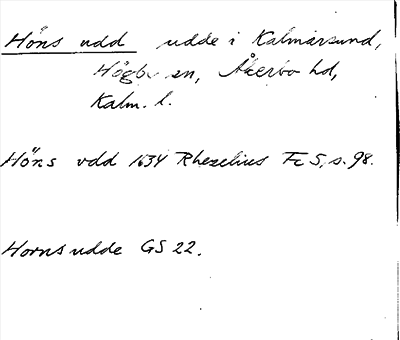 Höns udd udde i Kalmarsund,
Högby sn, Åkerbo hd,
Kalm. l.
Höns vdd 1634 Rhezelius Fc 5, s. 98.
Horns udde GS 22.